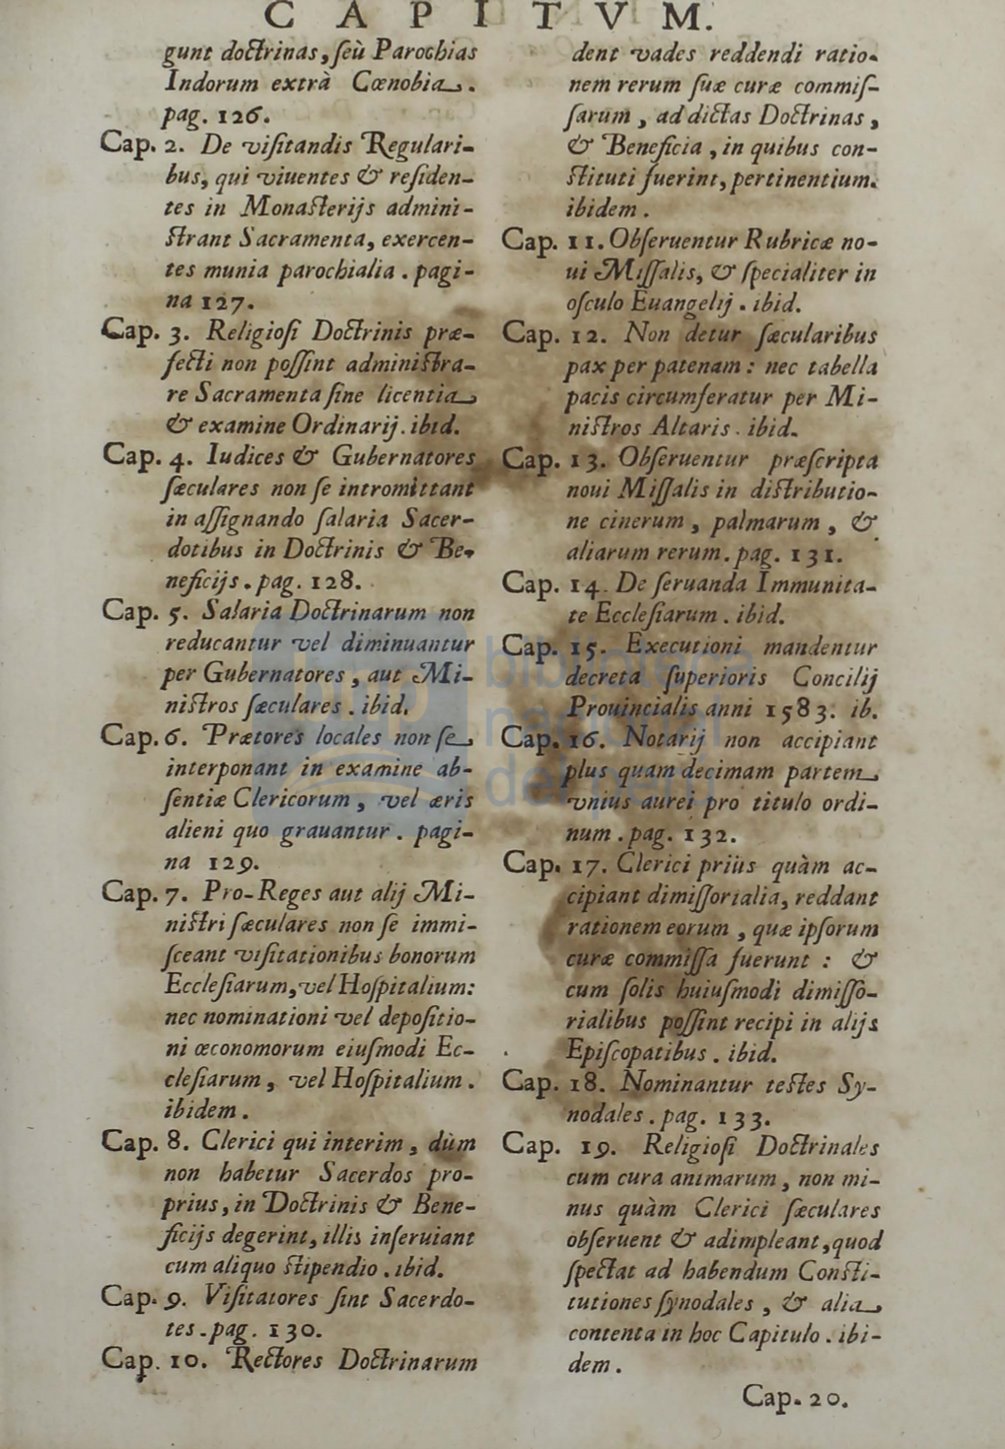 CAPITVM.
gunt doctrinas, ſeù Parochias
Indorum extrà Cœnobia.
pag. 126.
Cap. 2. De viſitandis Regulari-
bus, qui viuentes & reſiden-
tes in Monaſterijs admini-
ſtrant Sacramenta, exercen-
tes munia parochialia. pagi-
na 127.
Cap. 3. Religioſi Doctrinis præ-
fecti non poſſint adminiſtra-
re Sacramenta ſine licentia
& examine Ordinarij. ibid.
Cap. 4. Iudices & Gubernatores
ſæculares non ſe intromittant
in aſſignando ſalaria Sacer-
dotibus in Doctrinis & Be-
neficijs. pag. 128.
Cap. 5. Salaria Doctrinarum non
reducantur vel diminuantur
per Gubernatores, aut Mi-
niſtros ſæculares. ibid.
Cap. 6. Prætores locales non ſe
interponant in examine ab-
ſentiæ Clericorum, vel æris
alieni quo grauantur. pagi-
na 129.
Cap. 7. Pro-Reges aut alij Mi-
niſtri ſæculares non ſe immi-
ſceant viſitationibus bonorum
Eccleſiarum, vel Hoſpitalium:
nec nominationi vel depoſitio-
ni œconomorum eiuſmodi Ec-
cleſiarum, vel Hoſpitalium.
ibidem.
Cap. 8. Clerici qui interim, dùm
non habetur Sacerdos pro-
prius, in Doctrinis & Bene-
ficijs degerint, illis inſeruiant
cum aliquo ſtipendio. ibid.
Cap. 9. Viſitatores ſint Sacerdo-
tes. pag. 130.
Cap. 10. Rectores Doctrinarum
dent vades reddendi ratio-
nem rerum ſuæ curæ commiſ-
ſarum, ad dictas Doctrinas,
& Beneficia, in quibus con-
ſtituti fuerint, pertinentium.
ibidem.
Cap. 11. Obſeruentur Rubricæ no-
ui Miſſalis, & ſpecialiter in
oſculo Euangelij. ibid.
Cap. 12. Non detur ſæcularibus
pax per patenam: nec tabella
pacis circumferatur per Mi-
niſtros Altaris. ibid.
Cap. 13. Obſeruentur præſcripta
noui Miſſalis in diſtributio-
ne cinerum, palmarum, &
aliarum rerum. pag. 131.
Cap. 14. De ſeruanda Immunita-
te Eccleſiarum. ibid.
Cap. 15. Executioni mandentur
decreta ſuperioris Concilij
Prouincialis anni 1583. ib.
Cap. 16. Notarij non accipiant
plus quam decimam partem
vnius aurei pro titulo ordi-
num. pag. 132.
Cap. 17. Clerici priùs quàm ac-
cipiant dimiſſorialia, reddant
rationem eorum, quæ ipſorum
curæ commiſſa fuerunt: &
cum ſolis huiuſmodi dimiſſo-
rialibus poſſint recipi in alijs
Epiſcopatibus. ibid.
Cap. 18. Nominantur teſtes Sy-
nodales. pag. 133.
Cap. 19. Religioſi Doctrinales
cum cura animarum, non mi-
nus quàm Clerici ſæculares
obſeruent & adimpleant, quod
ſpectat ad habendum Conſti-
tutiones ſynodales, & alia
contenta in hoc Capitulo. ibi-
dem.
Cap. 20.